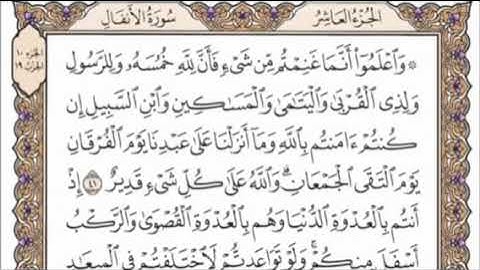 الجزء العاشر
سورة الأنفال
الجزء ١٠
الحزب ١٩
۞ وَٱعۡلَمُوٓاْ أَنَّمَا غَنِمۡتُم مِّن شَيۡءٖ فَأَنَّ لِلَّهِ خُمُسَهُۥ وَلِلرَّسُولِ
وَلِذِي ٱلۡقُرۡبَىٰ وَٱلۡيَتَٰمَىٰ وَٱلۡمَسَٰكِينِ وَٱبۡنِ ٱلسَّبِيلِ إِن
كُنتُمۡ ءَامَنتُم بِٱللَّهِ وَمَآ أَنزَلۡنَا عَلَىٰ عَبۡدِنَا يَوۡمَ ٱلۡفُرۡقَانِ
يَوۡمَ ٱلۡتَقَى ٱلۡجَمۡعَانِۗ وَٱللَّهُ عَلَىٰ كُلِّ شَيۡءٖ قَدِيرٌ ٤١ إِذۡ
أَنتُم بِٱلۡعُدۡوَةِ ٱلدُّنۡيَا وَهُم بِٱلۡعُدۡوَةِ ٱلۡقُصۡوَىٰ وَٱلرَّكۡبُ
أَسۡفَلَ مِنكُمۡۚ وَلَوۡ تَوَاعَدتُّمۡ لَٱخۡتَلَفۡتُمۡ فِي ٱلۡمِيعَٰدِ